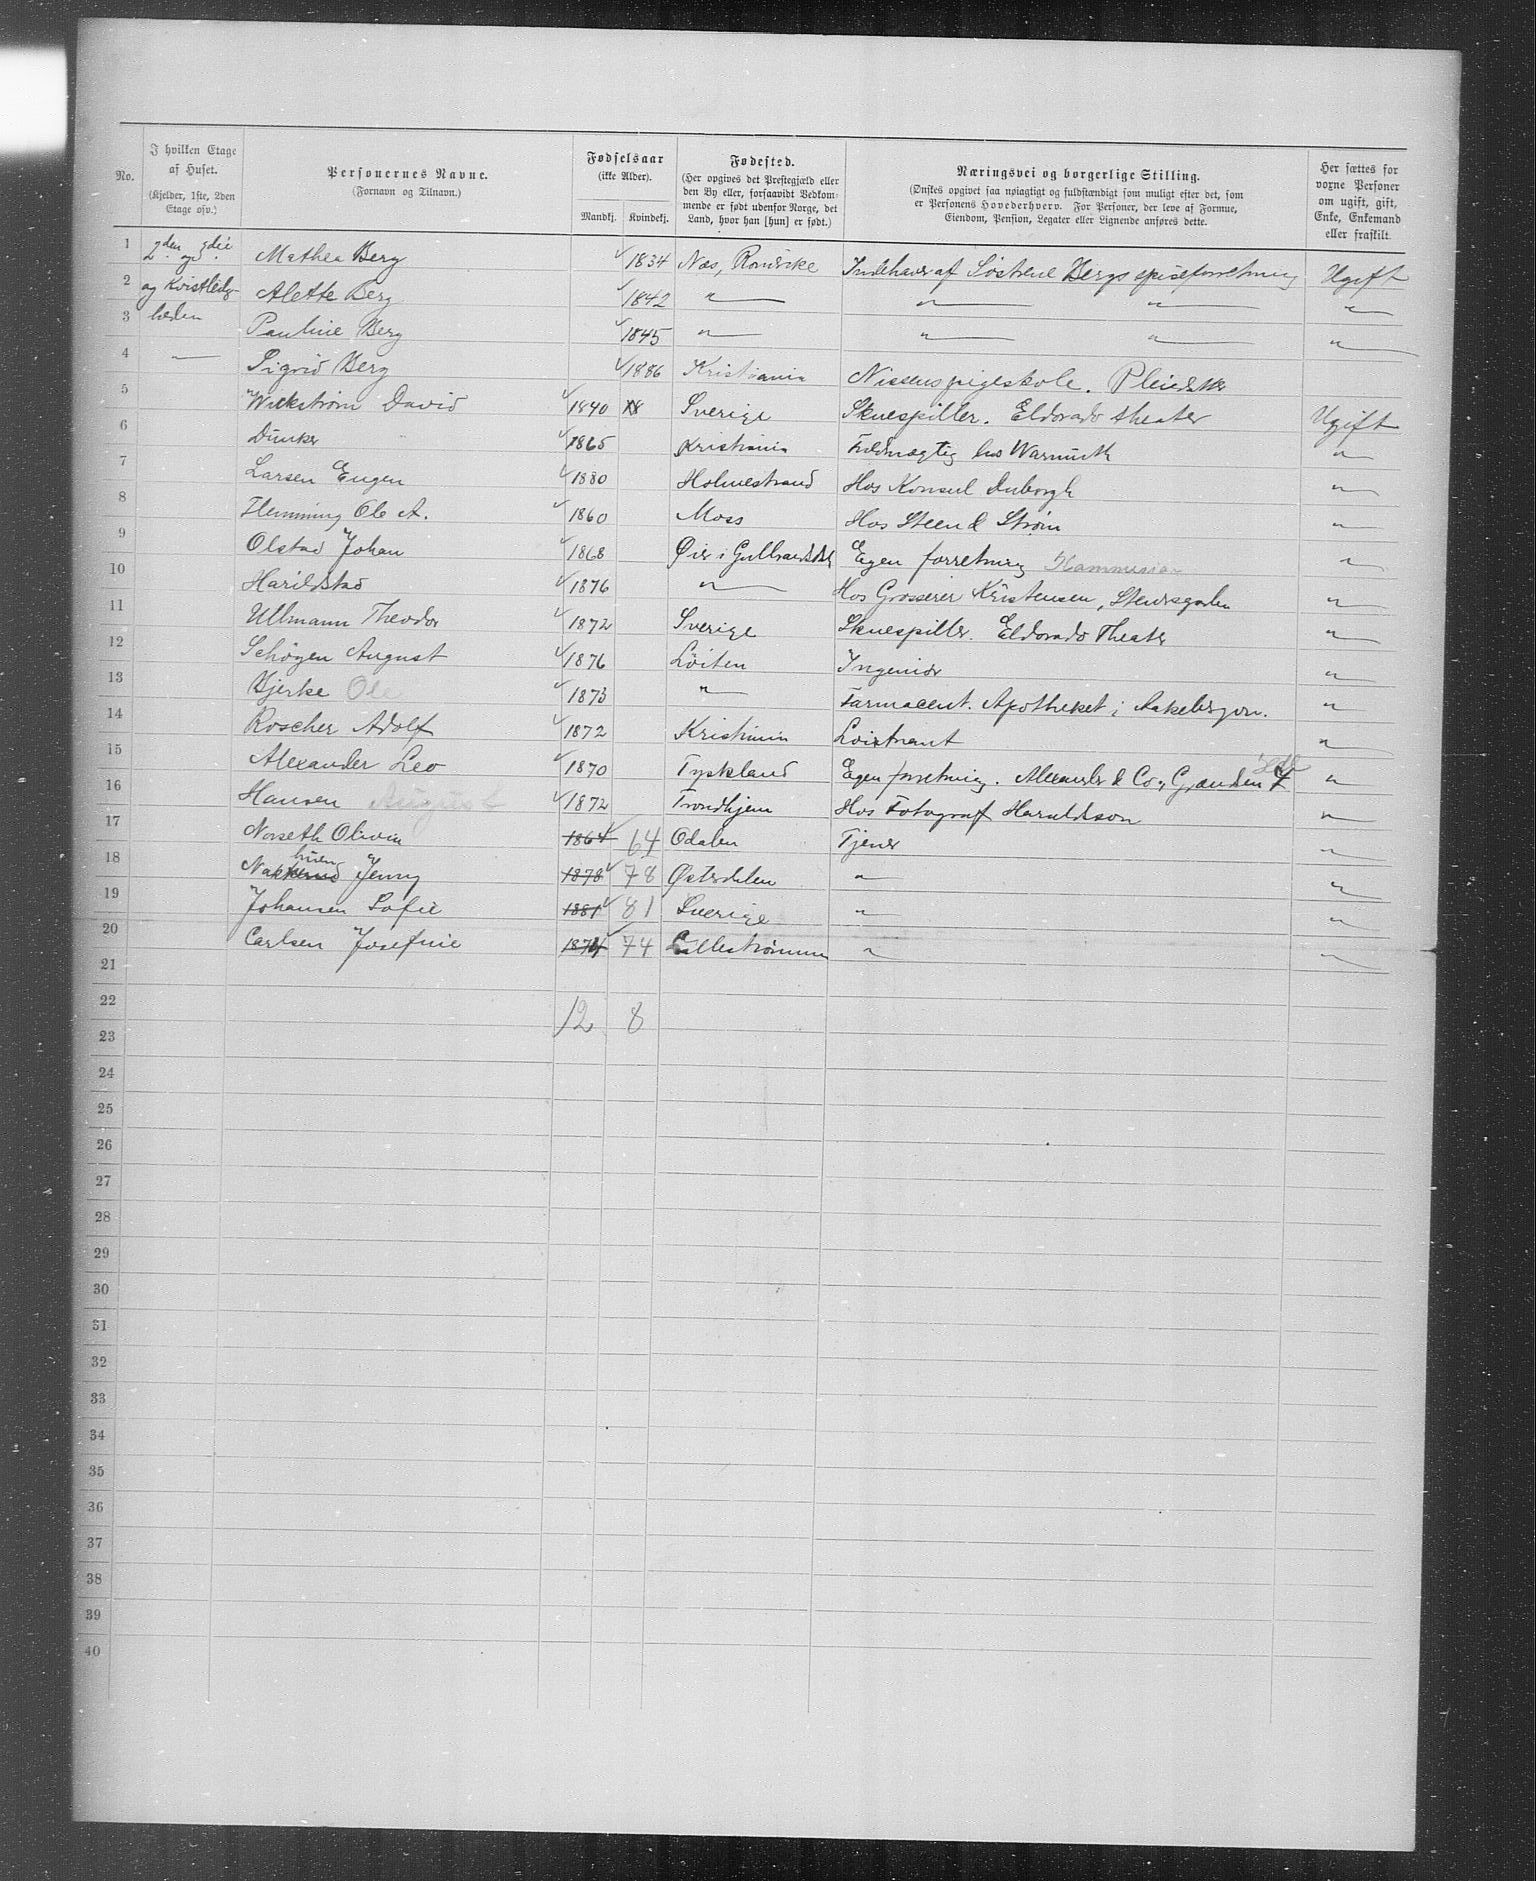 No. I hvilken Etage af Huset. (Kjelder, 1ste, 2den Etage osv.) Personernes Navne. (Fornavn og Tilnavn.) Fødselsaar (ikke Alder). Mandkj. Kvindekj. Fødested. (Her opgives det Prestegjæld eller den By eller, forsaavidt Vedkommende er født udenfor Norge, det Land, hvor han [hun] er født.) Næringsvei og borgerlige Stilling. (Ønskes opgivet saa nøiagtigt og fuldstændigt som muligt efter det, som er Personens Hovederhverv. For Personer, der leve af Formue, Eiendom, Pension, Legater eller Lignende anføres dette. Her sættes for voxne Personer om ugift, gift, Enke, Enkemand eller fraskilt.
1 2den og 3die Mathea Berg 1834 Næs, Romerike Indehaver af Søstrene Bergs spiseforretning Ugift
2 og Kvistleilig- Alette Berg 1842 " " " "
3 heden Pauline Berg 1845 " " " "
4 " Sigrid Berg 1886 Kristiania Nissens pigeskole. Pleiedatter
5 Wickstrøm David 1840 Sverige Skuespiller. Eldorado theater Ugift
6 Dunker 1865 Kristiania Fuldmægtig hos Warmuth "
7 Larsen Eugen 1880 Holmestrand Hos Konsul Duborgh "
8 Flemming Ole A. 1860 Moss Hos Steen & Strøm "
9 Olstad Johan 1868 Øier i Gulbrandsdal Egen forretning "
10 Harildstad 1876 " Hos Grosserer Kristensen, Stenersgaden "
11 Ullmann Theodor 1872 Sverige Skuespiller. Eldorado Theater "
12 Schøyen August 1876 Løiten Ingeniør "
13 Bjerke Ole 1873 " Farmaceut. Apotheket i Aakebergvn. "
14 Roscher Adolf 1872 Kristiania Løitnant "
15 Alexander Leo 1870 Tyskland Egen forretning. Alexander & Co, Grændsen "
16 Hansen August 1872 Trondhjem Hos Fotograf Haraldson "
17 Norseth Olivia 1864 64 Odalen Tjener "
18 Jenny 1878 78 Østerdalen " "
19 Johansen Sofie 1881 81 Sverige " "
20 Carlsen Josefine 1874 74 Lillestrømmen " "
21
22 12 8
23
24
25
26
27
28
29
30
31
32
33
34
35
36
37
38
39
40